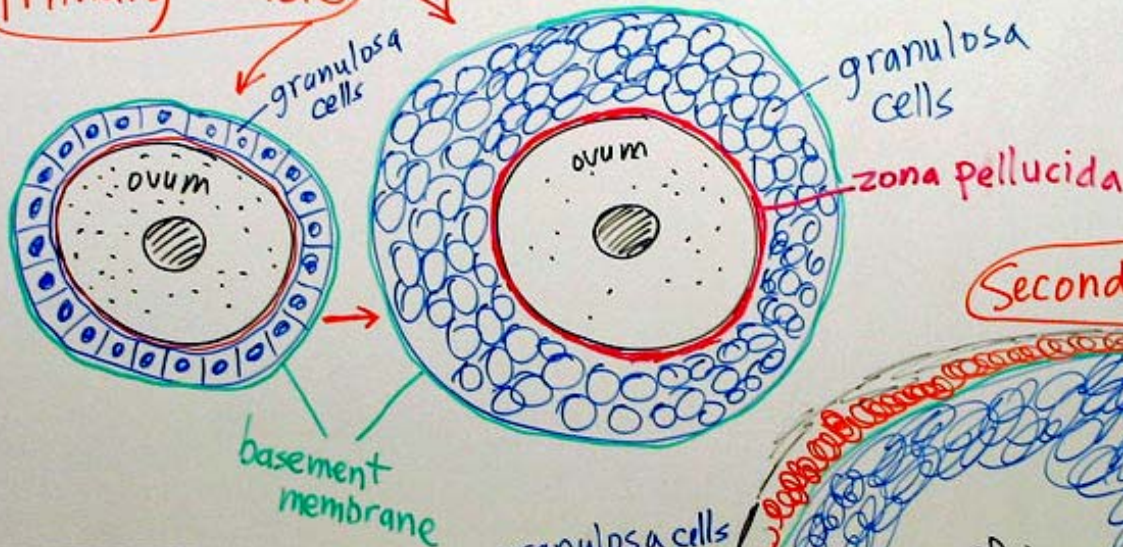 granulosa
cells
granulosa
cells
ovum
ovum
zona pellucida
Second
basement
membrane
granulosa cells